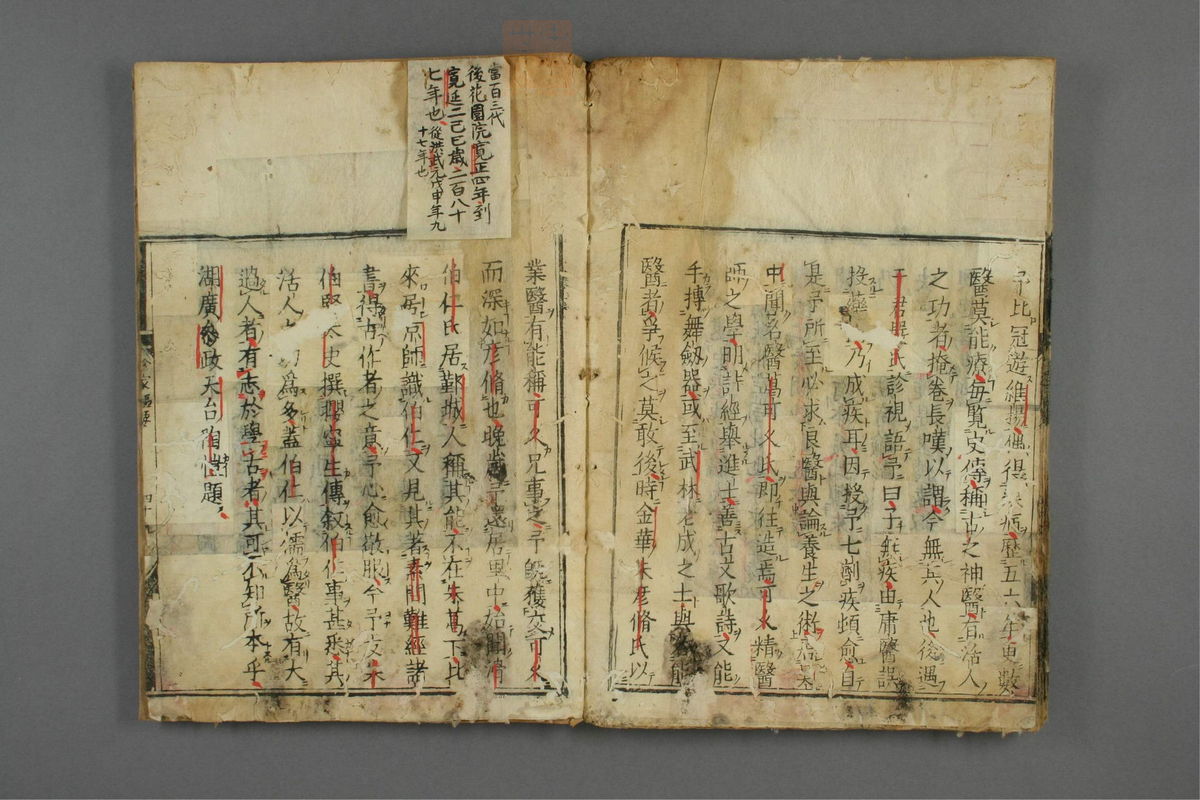 予比冠遊維揚偶得 病歷五六年更數
醫莫能療每覧史傳稱古之神醫有活人
之功者掩卷長嘆以謂今無其人也後遇
于君 氏診視語予曰子 疾由庸醫誤
投 乃成疾耳因授予七劑疾頓愈自
是予所至必求良醫與論養生之術
中聞名醫葛可久氏即往造焉可久精醫
師之學明 經舉進士善古文歌詩又能
手搏舞劔器或至武林老成之士與 能
醫者爭候之莫敢後時金華朱彦脩氏以
業醫有能稱可久兄事之予既獲交可久
而深如彦脩也晚歲予還居里中始聞滑
伯仁氏居鄞城人稱其能不在朱葛下比
來居京師識伯仁又見其著素問難經諸
書得古作者之意予心愈敬服今予友朱
伯賢太史撰攖寧生傳叙伯仁事甚悉其
活人 功為多蓋伯仁以儒為醫故有大
過人者有志於學古者其可不知所本乎
湖廣參政天台陶 題
當百三代
後花園院寛正四年到
寛延二己巳歳二百八十
七年也從洪武元戊申年九
十七年也